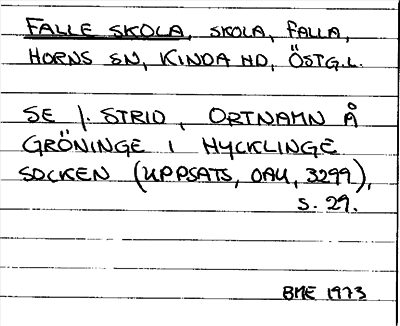 FALLE SKOLA, SKOLA, FALLA,
HORNS SN, KINDA HD, ÖSTG.L.
SE J. STRID, ORTNAMN Å
GRÖNINGE I HYCKLINGE
SOCKEN (UPPSATS, OAU, 3299),
S. 29.
BME 1973